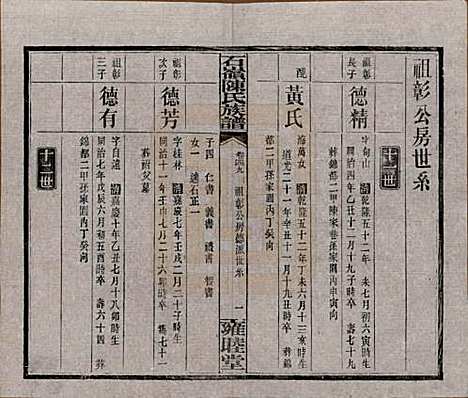 祖彰公房世系
十二世
祖彰
長子
德精
字甸山 清乾隆五十二年
未七月初六寅時生
同治四年七月十九亥時卒 壽七十九
配
黃氏
清乾隆五十二年丁未六月十三亥時生
道光二十一年辛丑十一月十九丑時卒 葬錦
都二甲孫家園丙丁癸向
子四 仁書 義書 禮書 智書
女一 適石正一
石嶺陳氏族譜
祖彰公房德派世系
一
雍睦堂
祖彰
次子
德芳
字桂林 清嘉慶七年壬戌二月二十子時生
同治十一年壬申七月二十六卯時卒 壽七十一
葬祔父墓
祖彰
三子
德有
字自遠 清嘉慶十年乙丑七月十八丑時生
同治七年戊辰六月初五酉時卒 壽六十四 葬
錦都二甲孫家園丙丁癸向
十二世